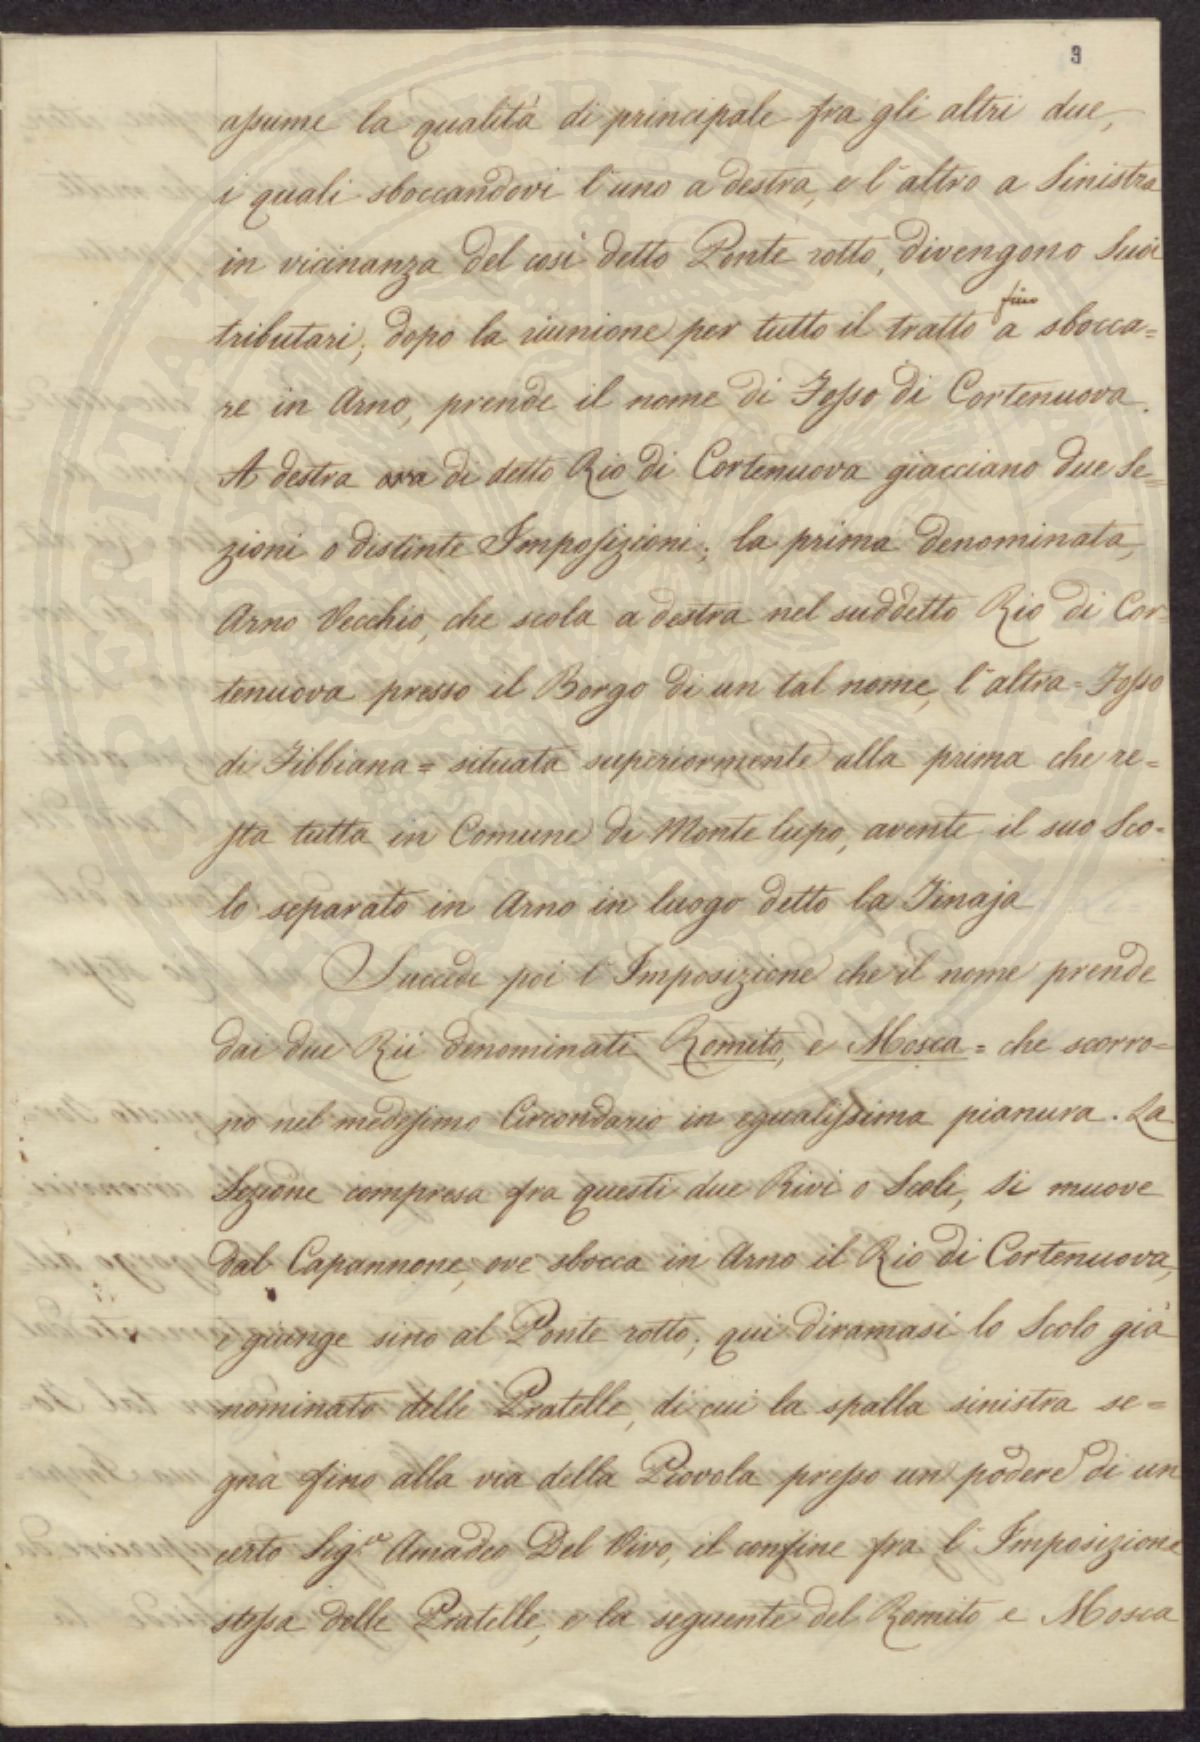 3
assume la qualità di principale fra gli altri due,
i quali sboccandovi l'uno a destra, e l'altro a Sinistra
in vicinanza del così detto Ponte rotto, divengono Suoi
tributari; dopo la riunione per tutto il tratto fino a sbocca=
re in Arno, prende il nome di Fosso di Cortenuova.
A destra ora di detto Rio di Cortenuova giacciano due Se=
zioni o distinte Imposizioni; la prima denominata,
Arno Vecchio, che scola a destra nel suddetto Rio di Cor=
tenuova presso il Borgo di un tal nome, l'altra = Fosso
di Fibbiana = situata superiormente alla prima che re=
sta tutta in Comune di Monte lupo, avente il suo Sco=
lo separato in Arno in luogo detto la Tinaja
Succede poi l'Imposizione che il nome prende
dai due Rii denominati Romito, e Mosca = che scorro=
no nel medesimo Circondario in egualissima pianura. La
Sezione compresa fra questi due Rivi o Scoli, si muove
dal Capannone, ove sbocca in Arno il Rio di Cortenuova,
e giunge sino al Ponte rotto; qui diramasi lo Scolo già
nominato delle Pratelle, di cui la spalla sinistra se=
gna fino alla via della Piovola presso un podere di un
certo Sig.re Amadeo Del Vivo, il confine fra l'Imposizione
stessa delle Pratelle, e la seguente del Romito e Mosca